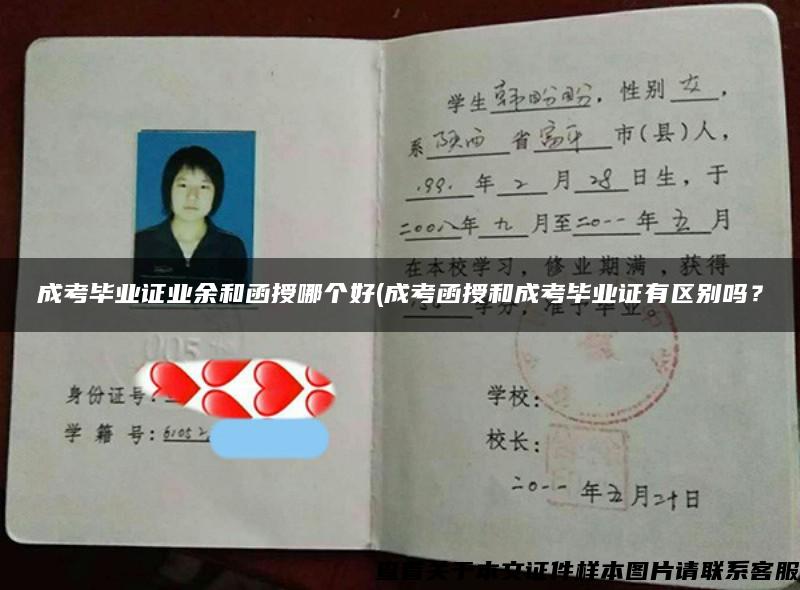 学生韩盼盼，性别女，
系陕西省富平市(县)人，
1991年2月28日生，于
二00八年九月至二0一一年五月
在本校学习，修业期满，获得
学分，准予毕业。
成考毕业证业余和函授哪个好(成考函授和成考毕业证有区别吗？
身份证号：
学籍号：61052
学校：
校长：
二0一一年五月二十日
查看关于本文证件样本图片请联系客服